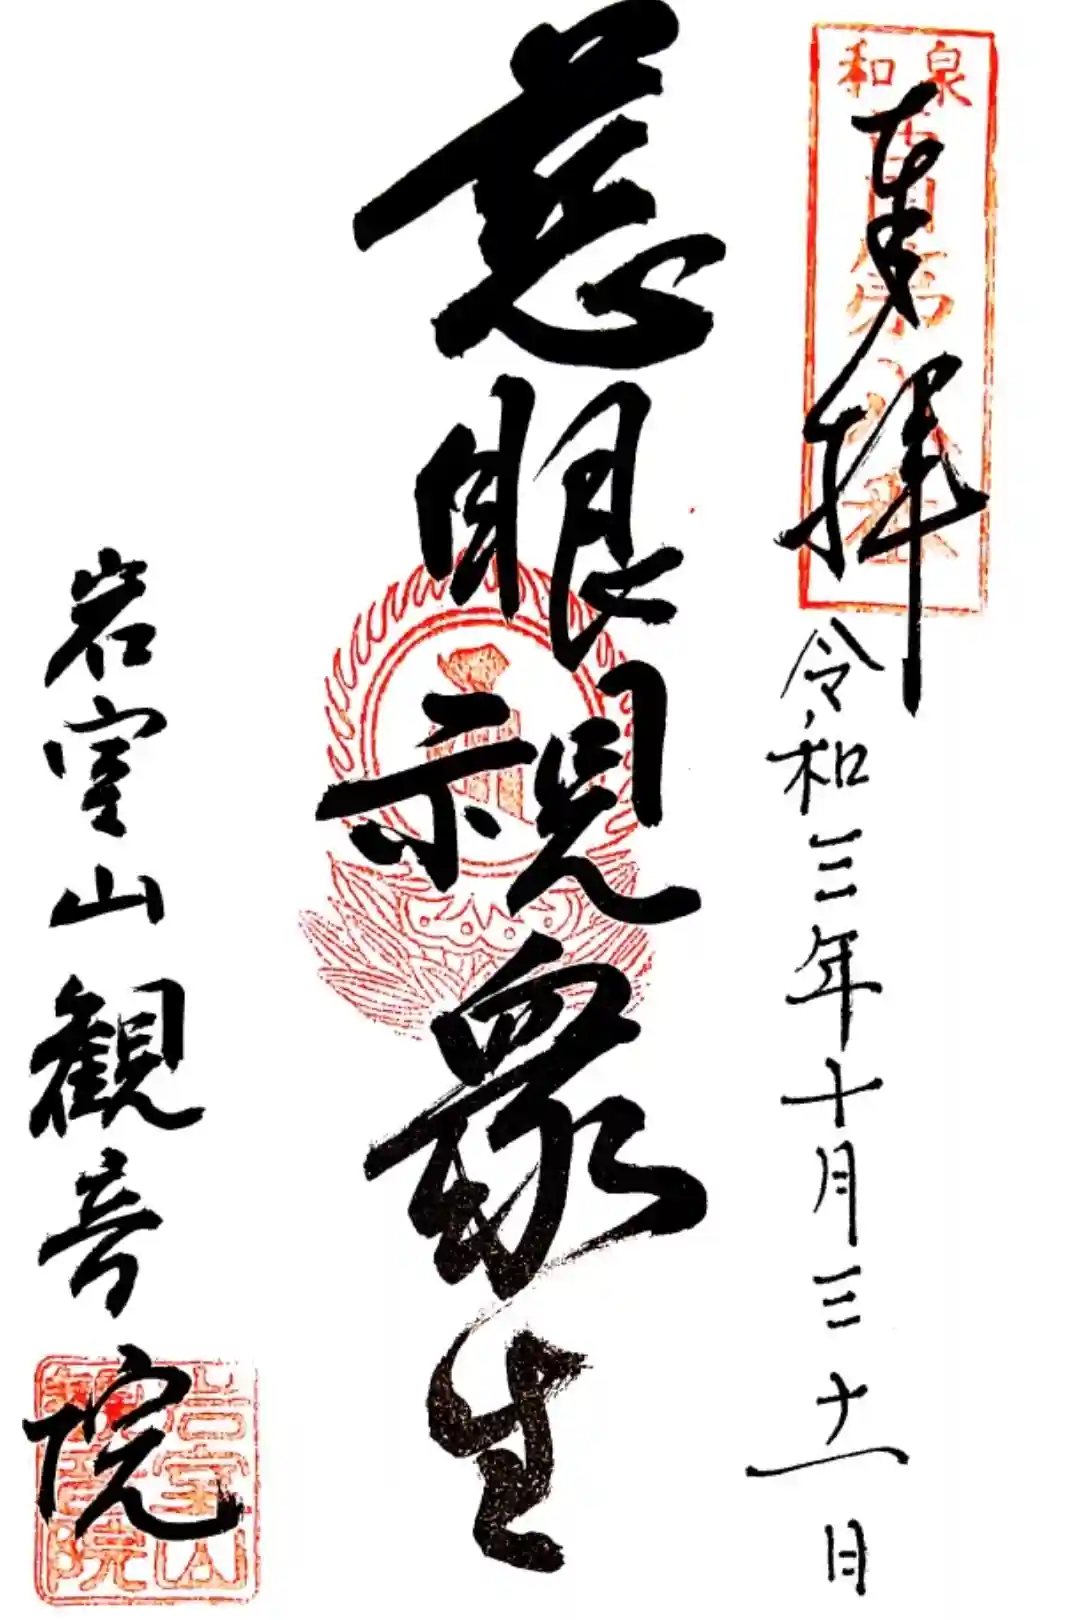 和泉
奉拝
令和三年十月三十一日
慈眼視衆生
岩室山観音院
岩室山
観音院